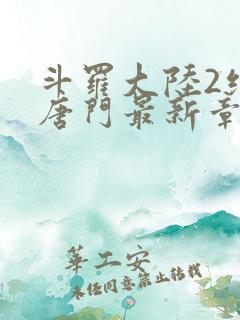 斗羅大陸2
唐門最新章
華工安
未經同意禁止轉載